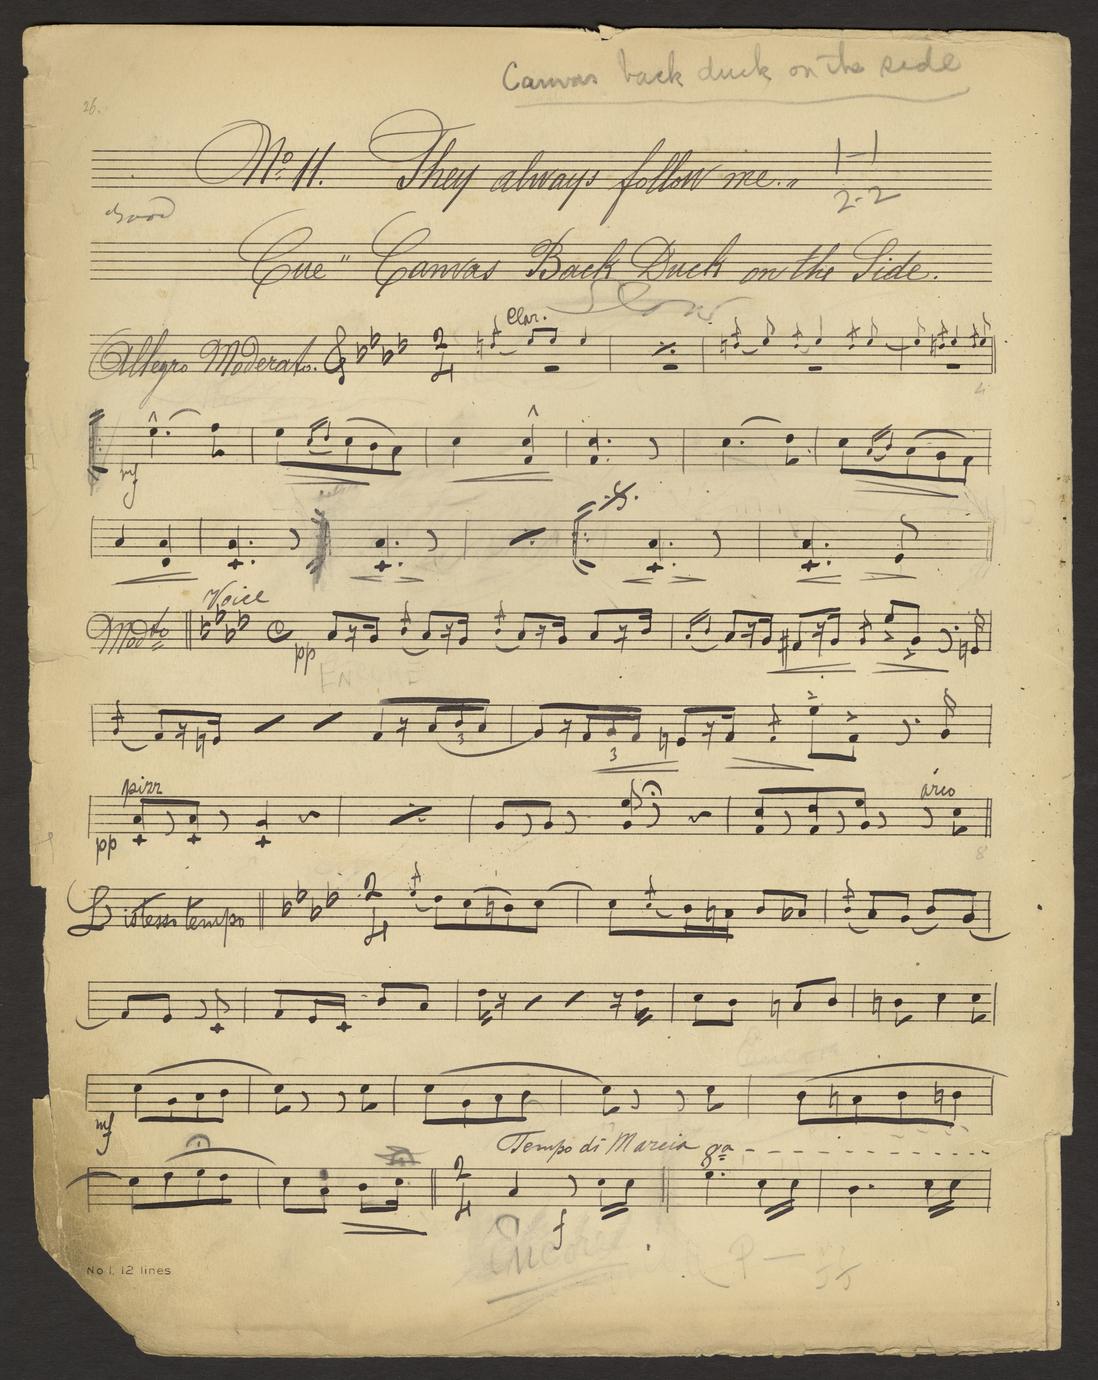 Canvas back duck on the side
26.
No. 11. They always follow me."
1-1
2-2
Cue" Canvas Back Duck on the Side.
Slow
Clar.
Allegro Moderato.
2
4
4
mf
Voice
Modto
pp
ENCORE
3
3
pizz
arco
pp
8
L'istesso tempo
2
4
mf
Tempo di Marcia 8va
2
4
f
Encore
No 1. 12 lines